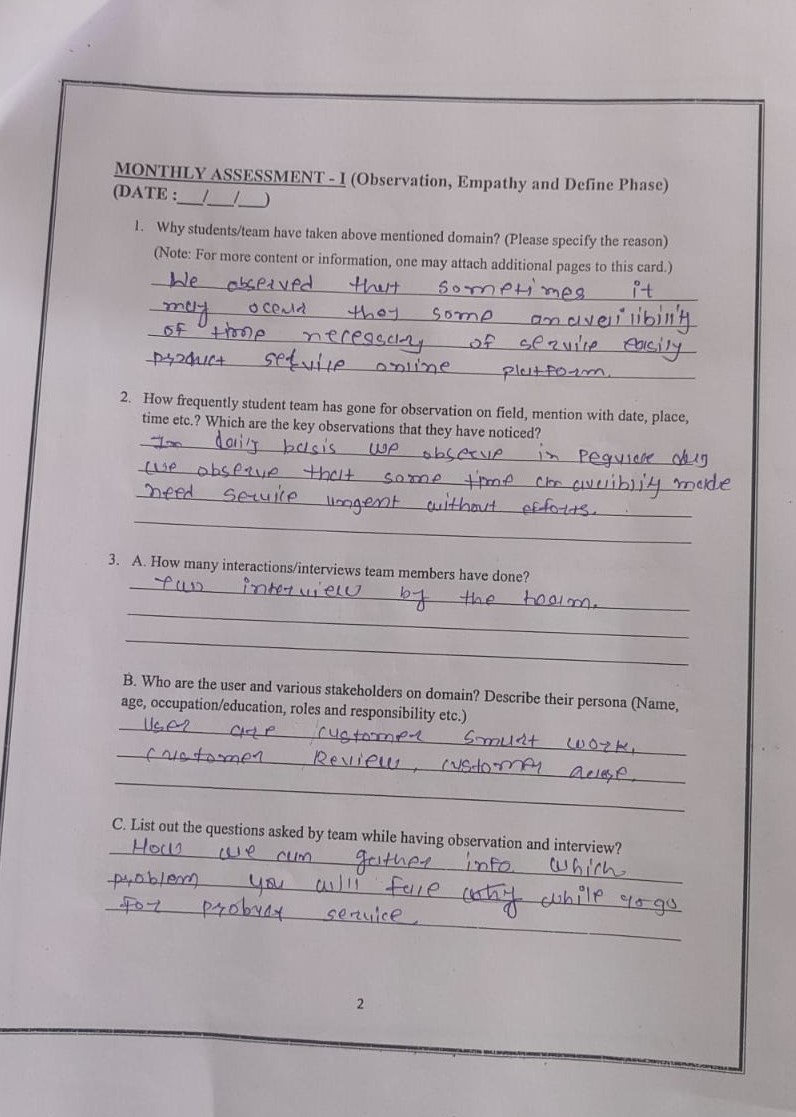 MONTHLY ASSESSMENT - I (Observation, Empathy and Define Phase)
(DATE :__/__/__)
1. Why students/team have taken above mentioned domain? (Please specify the reason)
(Note: For more content or information, one may attach additional pages to this card.)
We observed that sometimes it
may they some
of time necessary of service easily
product service online platform.
2. How frequently student team has gone for observation on field, mention with date, place,
time etc.? Which are the key observations that they have noticed?
In daily basis we observe in
we observe that some time made
need service without efforts.
3. A. How many interactions/interviews team members have done?
interview by the
B. Who are the user and various stakeholders on domain? Describe their persona (Name,
age, occupation/education, roles and responsibility etc.)
User are customer smart work,
customer Review,
C. List out the questions asked by team while having observation and interview?
How we can gather info which
problem you will face while
for service.
2